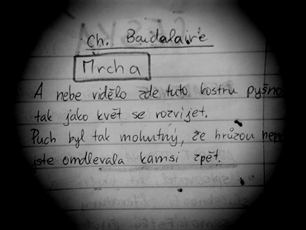 Ch. Baudalaire
Mrcha
A nebe vidělo zde tuto kostru pyšno
tak jako květ se rozvíjet.
Puch byl tak mohutný, že hrůzou
jste omdlevala kamsi zpět.